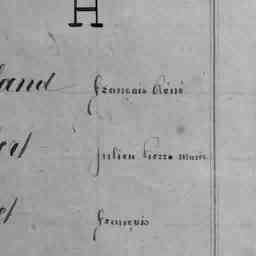 H
land François René
Julien Pierre Marie
François